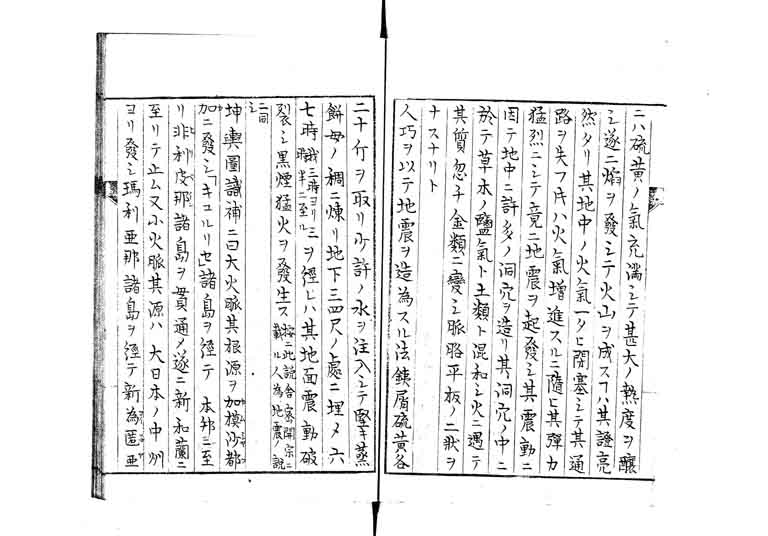 ニハ硫黄ノ氣充満シテ甚大ノ熱度ヲ釀
シ遂ニ焰ヲ發シテ火山ヲ成スコハ其證亮
然タリ其地中ノ火氣一タヒ閉塞シテ其通
路ヲ失フ片ハ火氣增進スルニ隨ヒ其彈力
猛烈ニシテ竟ニ地震ヲ起發シ其震動ニ
因テ地中ニ許多ノ洞穴ヲ造リ其洞穴ノ中ニ
於テ草木ノ鹽氣ト土類ト混和シ火ニ遇テ
其質忽チ金類ニ變シ脈胳平板ノ二狀ヲ
ナスナリト
人巧ヲ以テ地震ヲ造為スル法銕屑硫黄各
二十斤ヲ取リ少許ノ水ヲ注入シテ堅キ蒸
餅母ノ稠ニ煉リ地下三四尺ノ處ニ埋メ六
七時我三時ヨリ三時半ニ至ルヲ經レハ其地面震動破
裂シ黒煙猛火ヲ發生ス按ニ此説舎密開宗ニ載ル人為地震ノ説
ニ同シ
坤輿圖識補ニ曰大火脈其根源ヲ加模沙都
加ニ發シ「キュルリセ」諸島ヲ經テ本邦ニ至
リ非利皮那諸島ヲ貫通メ遂ニ新和蘭ニ
至リテ止ム又小火脈其源ハ大日本ノ中州
ヨリ發シ瑪利亜那諸島ヲ經テ新為匿亜